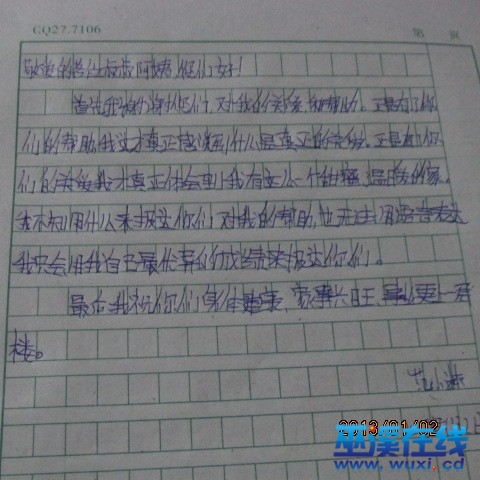 CQ27.7106
第 页
敬爱的爱心叔叔阿姨 您们好!
首先我谢谢您们,对我的关爱,和帮助。正是有了你
们的帮助我这才真正感谢到什么是真正的关爱。正是有了你
们的关爱我才真正体会到我有这么一个幸福温暖的家。
我不知用什么来报达你们对我的帮助,也无法用语言表达
我只会用我自己最优异的成绩来报达你们。
最后我祝你们身体健康、家事兴旺、事业更上一层
楼。
2013/01/02
巫溪在线
www.wuxi.cd